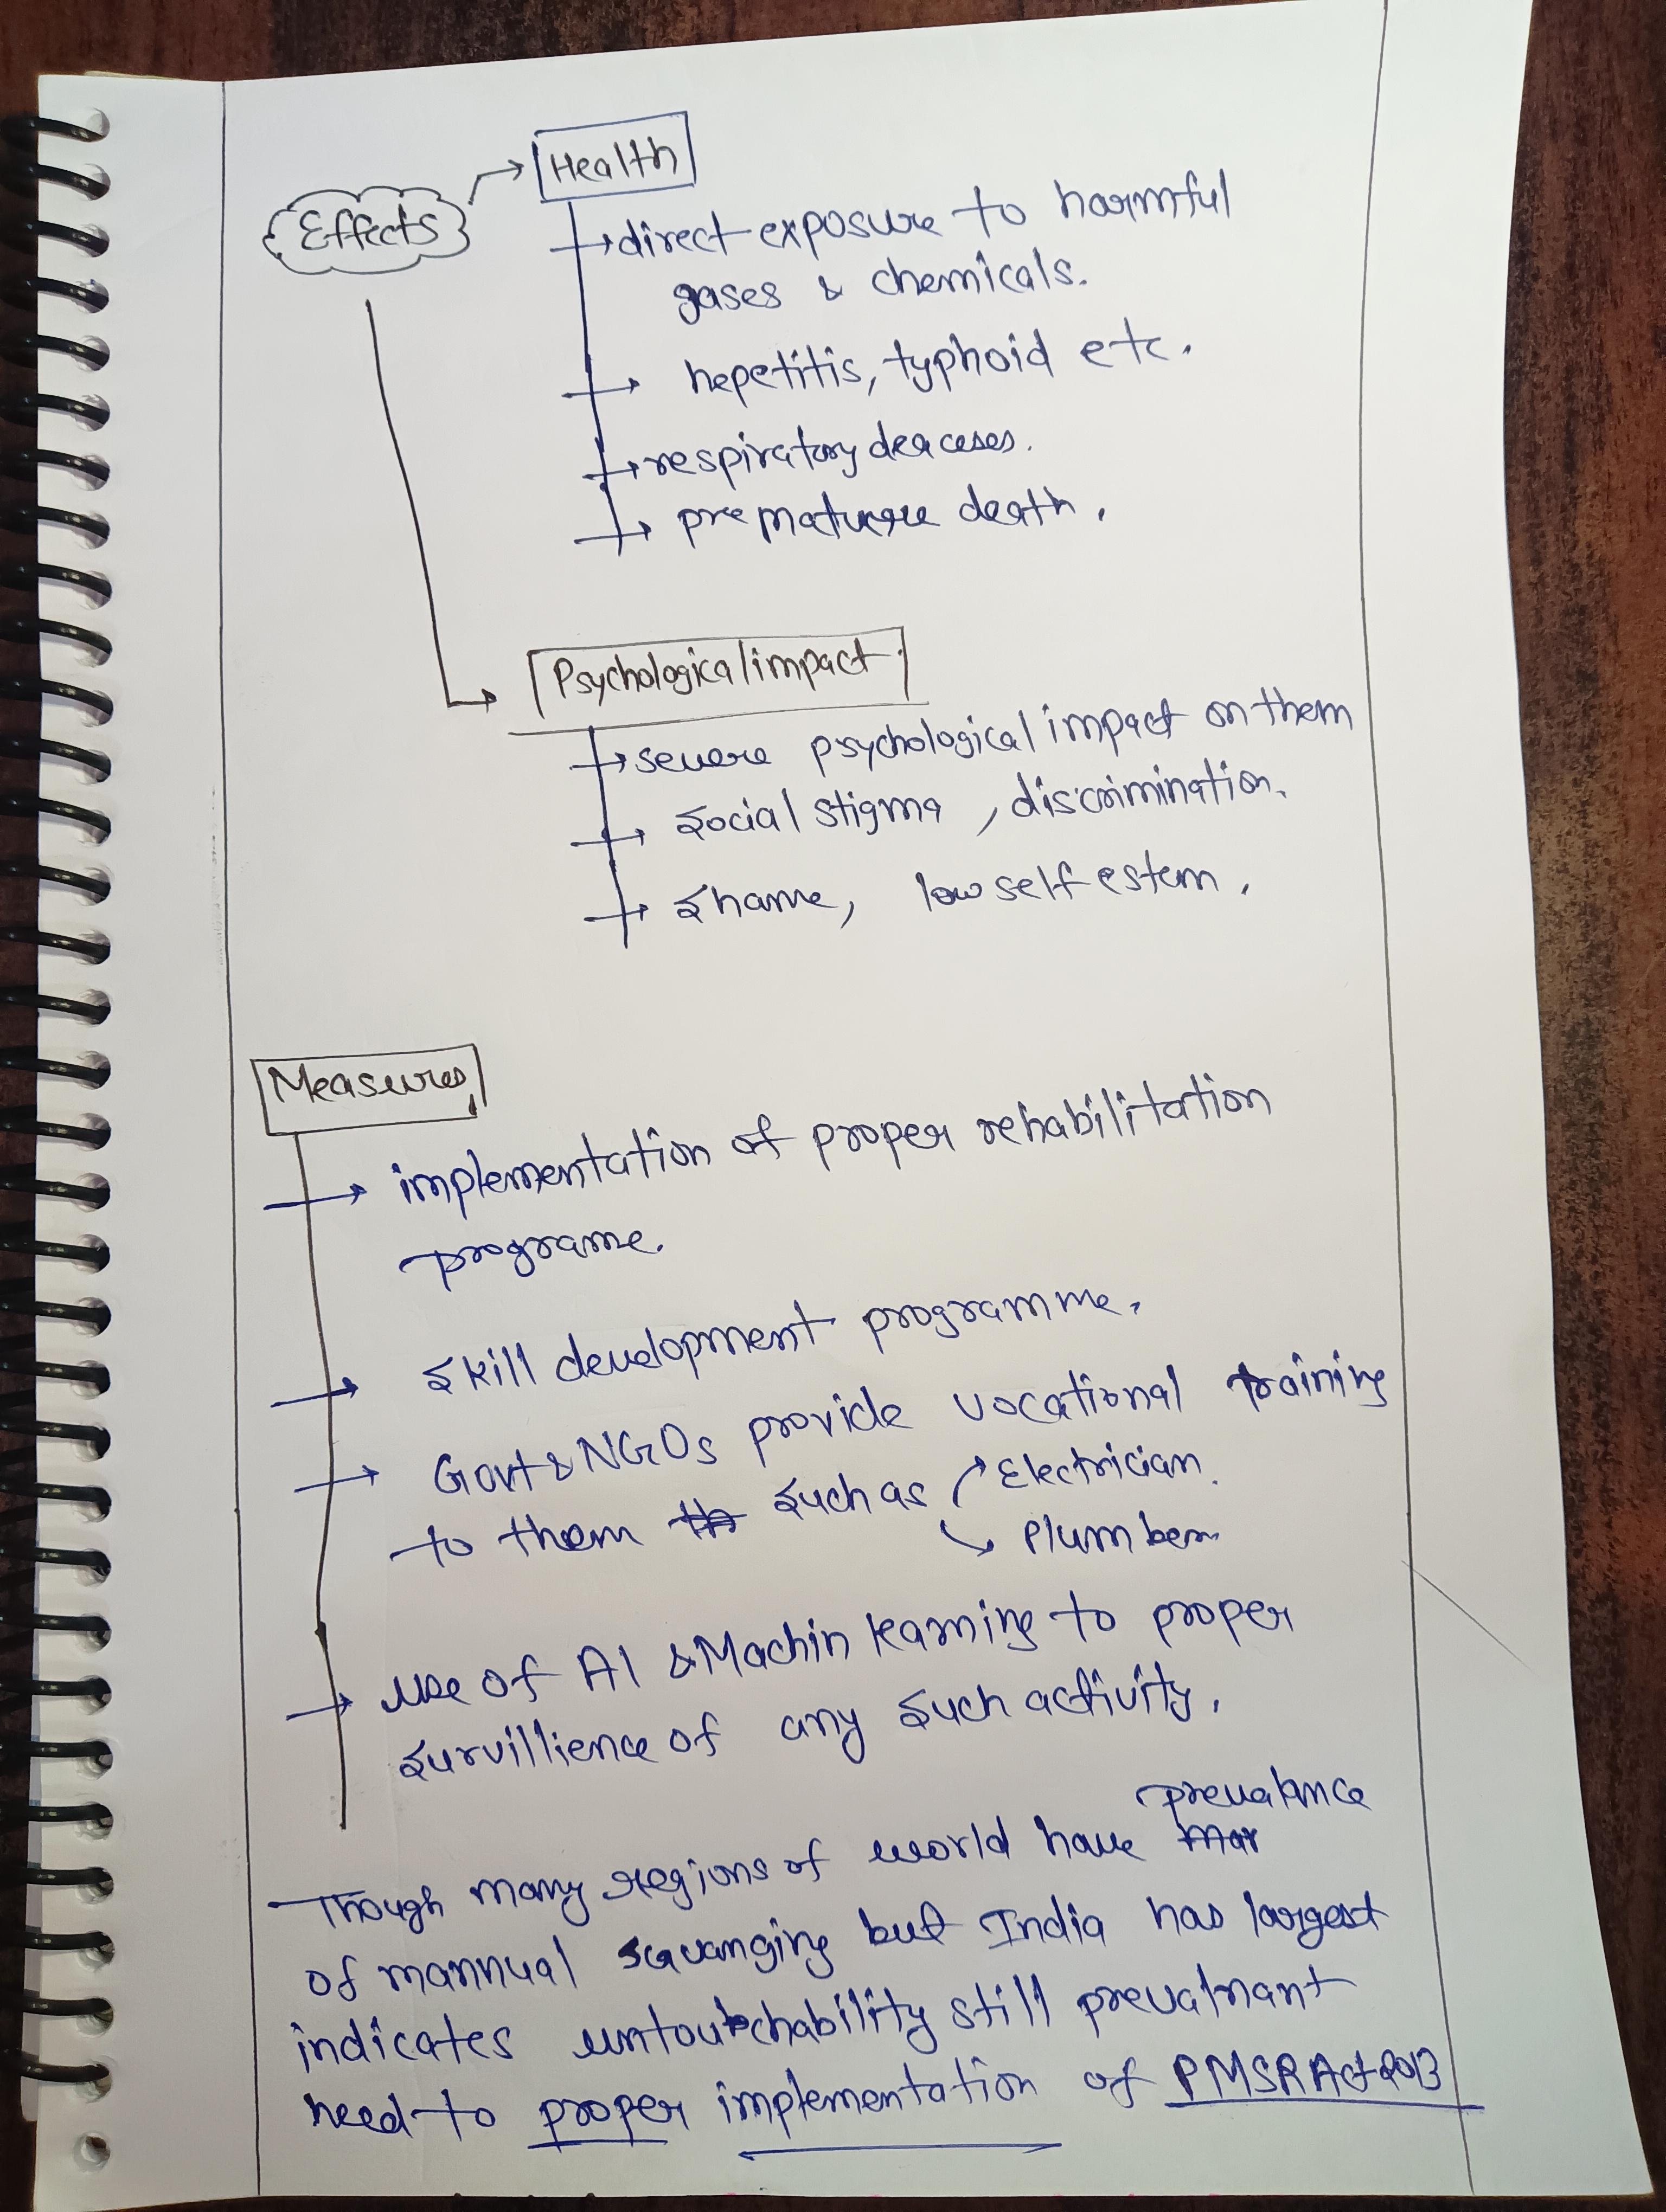 Effects
Health
direct exposure to harmful
gases & chemicals.
hepetitis, typhoid etc.
respiratory deaceses.
premature death.
Psychological impact
severe psychological impact on them
social stigma, discrimination.
shame, low self estem.
Measures
implementation of proper rehabilitation
programe.
skill development programme.
Govt & NGOs provide vocational training
to them such as Electrician.
Plumber
use of AI & Machin learning to proper
survillience of any such activity.
prevalance
Though many regions of world have
of mannual scavanging but India has largest
indicates untouchability still prevalnant
need to proper implementation of PMSR Act 2013